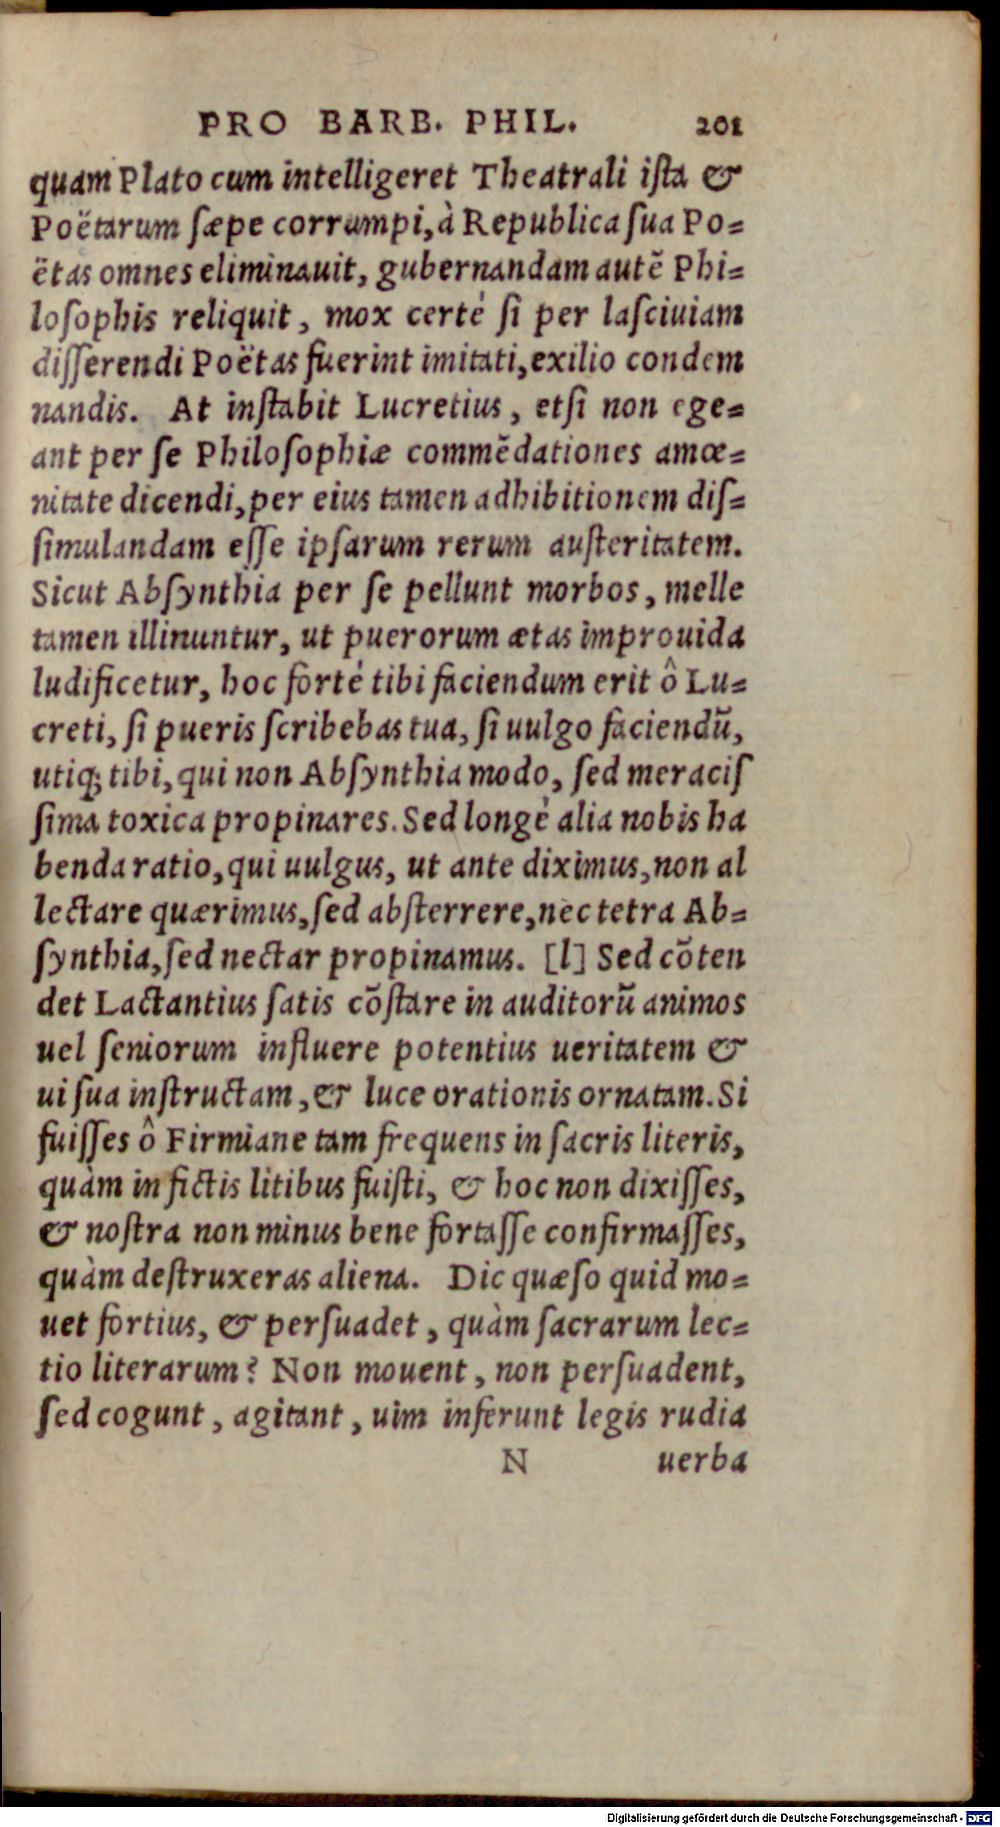 PRO BARB. PHIL. 201
quam Plato cum intelligeret Theatrali ista &
Poëtarum sæpe corrumpi, à Republica sua Po=
ëtas omnes eliminauit, gubernandam autẽ Phi=
losophis reliquit, mox certé si per lasciuiam
disserendi Poëtas fuerint imitati, exilio condem
nandis. At instabit Lucretius, etsi non ege=
ant per se Philosophiæ commẽdationes amœ=
nitate dicendi, per eius tamen adhibitionem dis=
simulandam esse ipsarum rerum austeritatem.
Sicut Absynthia per se pellunt morbos, melle
tamen illinuntur, ut puerorum ætas improuida
ludificetur, hoc forté tibi faciendum erit ô Lu=
creti, si pueris scribebas tua, si uulgo faciendũ,
utiq; tibi, qui non Absynthia modo, sed meracis
sima toxica propinares. Sed longé alia nobis ha
benda ratio, qui uulgus, ut ante diximus, non al
lectare quærimus, sed absterrere, nec tetra Ab=
synthia, sed nectar propinamus. [l] Sed cõten
det Lactantius satis cõstare in auditorũ animos
uel seniorum influere potentius ueritatem &
ui sua instructam, & luce orationis ornatam. Si
fuisses ô Firmiane tam frequens in sacris literis,
quàm in fictis litibus fuisti, & hoc non dixisses,
& nostra non minus bene fortasse confirmasses,
quàm destruxeras aliena. Dic quæso quid mo=
uet fortius, & persuadet, quàm sacrarum lec=
tio literarum? Non mouent, non persuadent,
sed cogunt, agitant, uim inferunt legis rudia
N uerba
Digitalisierung gefördert durch die Deutsche Forschungsgemeinschaft - DFG